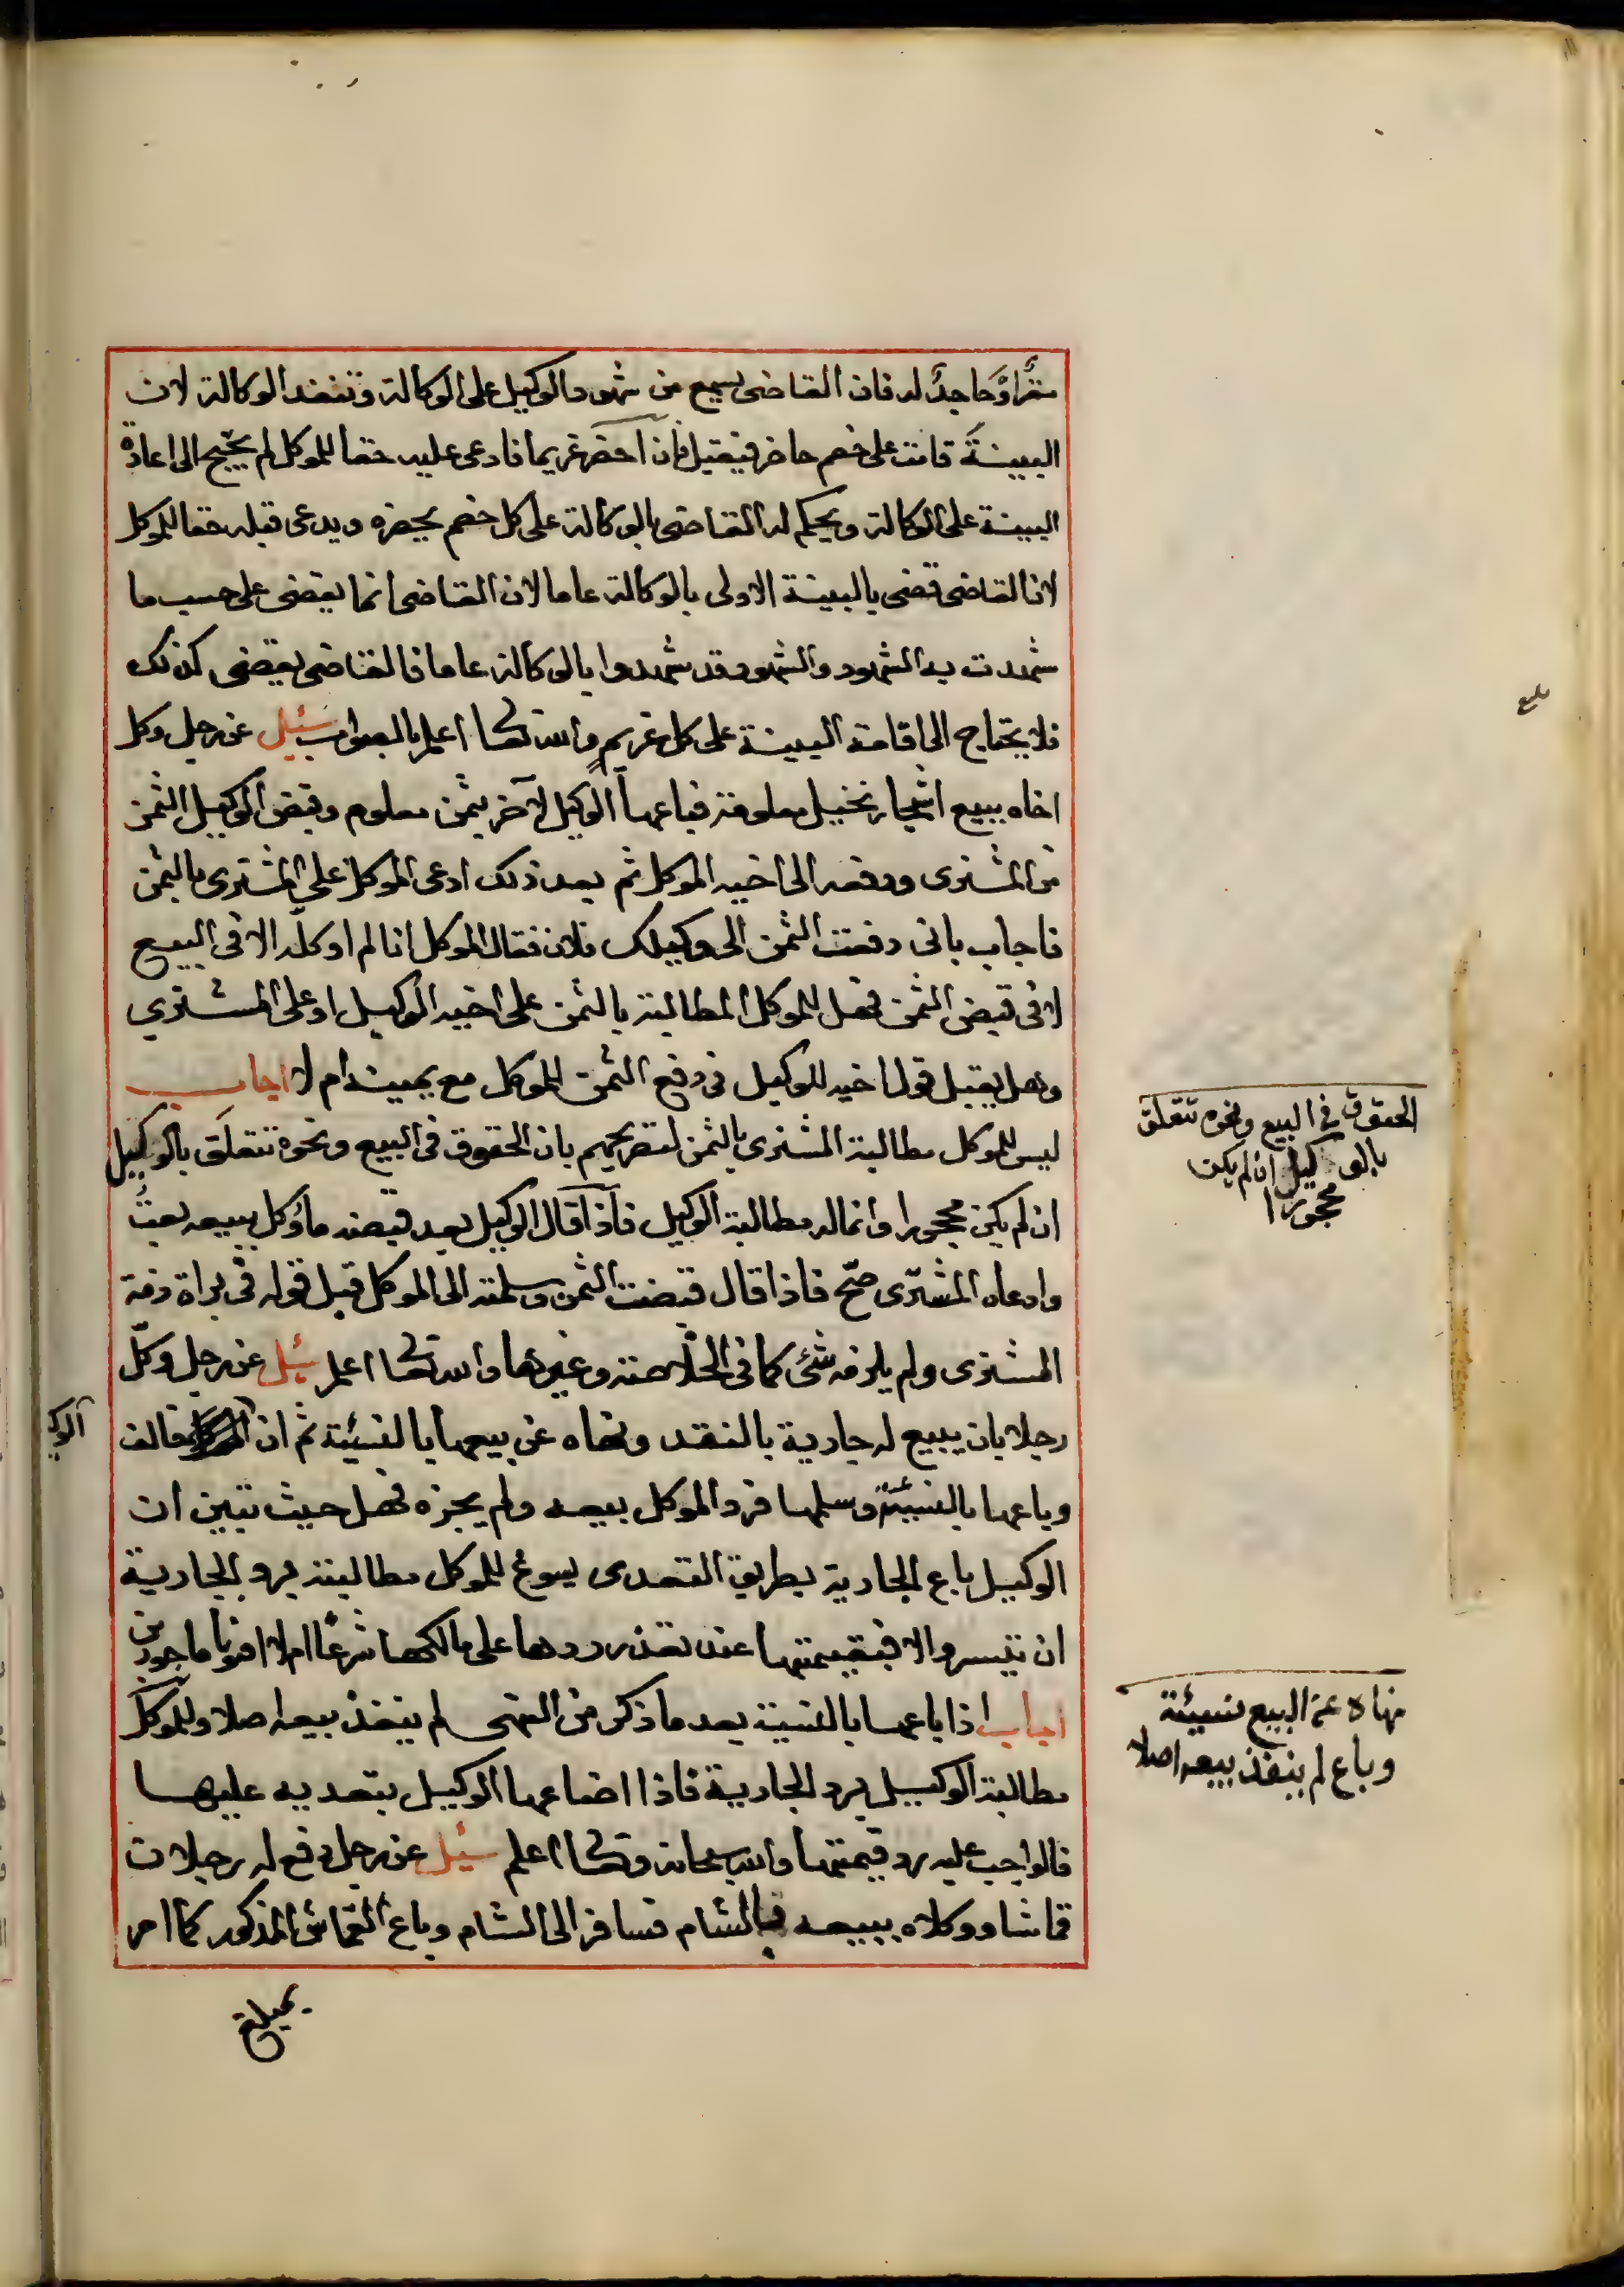 مقرا او جاحدا له فان القاضى يسمع من شهود الوكيل على الوكالة وتنفذ الوكالة لان
البينة قامت على خصم حاضر فيقبل فان احضر غريما فادعى عليه حقا للموكل لم يحتج الى اعادة
البينة على الوكالة ويحكم له القاضى بالوكالة على كل خصم يحضره ويدعى قبله حقا للموكل
لان القاضى قضى بالبينة الاولى بالوكالة عاما لان القاضى انما يقضى على حسب ما
شهدت به الشهود والشهود قد شهدوا بالوكالة عاما فالقاضى يقضى كذلك
فلا يحتاج الى اقامة البينة على كل غريم والله تعالى اعلم بالصواب سئل عن رجل وكل
اخاه ببيع اشجار نخيل معلومة فباعها الوكيل لآخر بثمن معلوم وقبض الوكيل الثمن
من المشترى ودفعه الى اخيه الموكل ثم بعد ذلك ادعى الموكل على المشترى بالثمن
فاجاب بانى دفعت الثمن الى وكيلك فلان فقال الموكل انا لم اوكله الا فى البيع
لا فى قبض الثمن فهل للموكل المطالبة بالثمن على اخيه الوكيل او على المشتري
وهل يقبل قول اخيه الوكيل فى دفع الثمن للموكل مع يمينه ام لا اجاب
ليس للموكل مطالبة المشترى بالثمن لتصريحهم بان الحقوق فى البيع ونحوه تتعلق بالوكيل
ان لم يكن محجورا وانما له مطالبة الوكيل فاذا قال الوكيل بعد قبضه ما وكل ببيعه بعتُ
وادعاه المشترى صح فاذا قال قبضت الثمن وسلمته الى الموكل قبل قوله فى براة ذمة
المشترى ولم يلزمه شئ كما فى الخلاصة وغيرها والله تعالى اعلم سئل عن رجل وكل
رجلا بان يبيع له جارية بالنقد ونهاه عن بيعها بالنسيئة ثم ان خالف
الوكيل
وباعها بالنسيئة وسلمها فرد الموكل بيعه ولم يجزه فهل حيث تبين ان
الوكيل باع الجارية بطريق التعدى يسوغ للموكل مطالبته برد الجارية
ان تيسر والا فبقيمتها عند تعذر ردها على مالكها شرعا ام لا افتونا ماجورين
اجاب اذا باعها بالنسيئة بعد ما ذكر من النهى لم ينفذ بيعه اصلا وللموكل
مطالبة الوكيل برد الجارية فاذا اضاعها الوكيل بتعديه عليها
فالواجب عليه رد قيمتها والله سبحانه وتعالى اعلم سئل عن رجل دفع له رجلان
قماشا ووكلاه ببيعه بالشام فسافر الى الشام وباع القماش المذكور كما امر
بمبلغ
بلغ
الحقوق فى البيع ونحوه تتعلق
بالوكيل ان لم يكن
محجورا
نهاه عن البيع نسيئة
وباع لم ينفذ بيعه اصلا